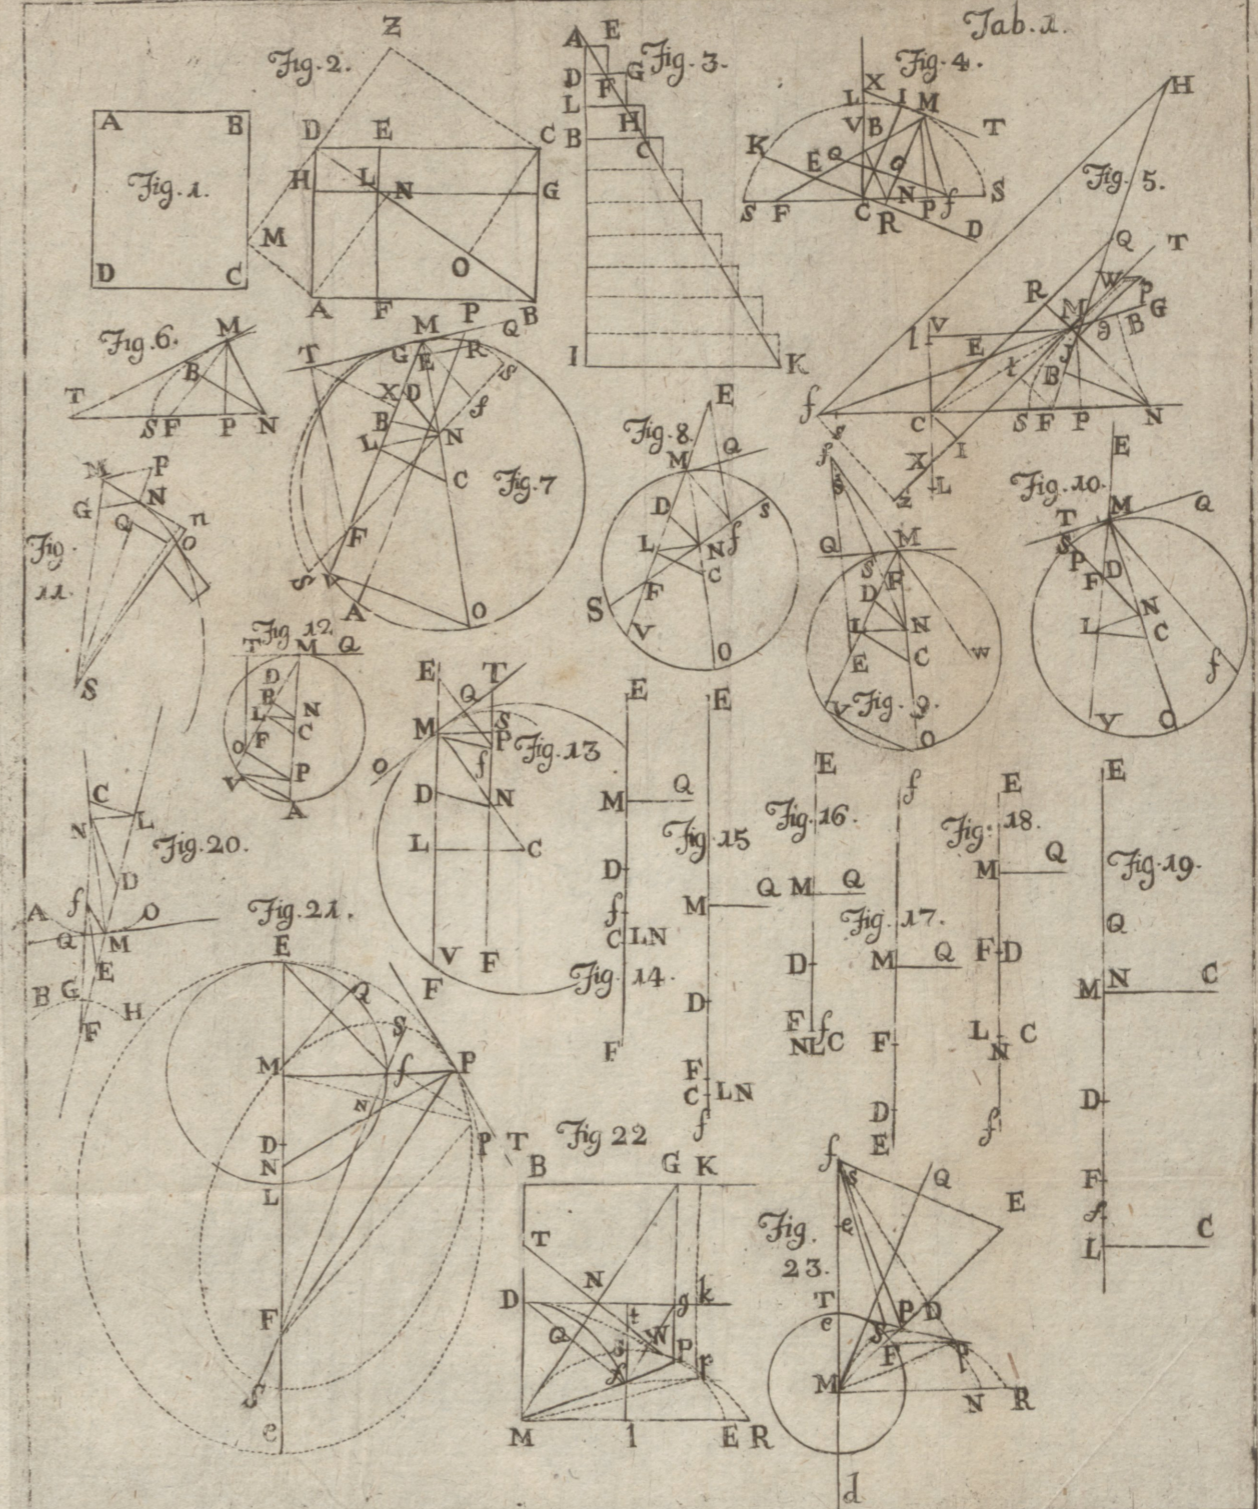 Tab. 1.
Fig. 1.
A B
D C
Fig. 2.
Z
D E C
H L N G
M O
A F B
Fig. 3.
A E
D F G
L H
B C
I K
Fig. 4.
X
L I M
V B T
K E Q O
S F C R N P f S
D
Fig. 5.
H
Q T
W P
R M G
l V E g B
t B
f C S F P N
s I
X
Z L
Fig. 6.
M
B
T S F P N
Fig. 7
M P Q
T G E R S
X D f
B
L N
C
F
S V A O
Fig. 8.
E
M Q
D s
L N f
C
F
S V O
Fig. 9.
f
S
Q M
S R
D
L N
E C w
V O
Fig. 10.
E
T M Q
S P F D
L N C
f
V O
Fig. 11.
M P
G N
Q n O
S
Fig. 12.
T M Q
D
B
L N
O F C
V P
A
Fig. 13
E T
Q
M S
P
O f
D N
L C
V F
Fig. 14.
E
M Q
D
f
C LN
F
Fig. 15
E
M Q
D
F
C LN
f
Fig. 16.
E
M Q
D
F f
NLC
Fig. 17.
f
M Q
F
D
E
Fig. 18.
E
M Q
F D
L C
N
f
Fig. 19.
E
Q
M N C
D
F
f
L C
Fig. 20.
C
N L
D
A f O
Q M
E
B G H
F
Fig. 21.
E
Q
S
M f P
N
D p T
N
L
F
S
e
Fig 22
B G K
T
D N t g k
Q s W P
f p
M l E R
Fig. 23.
f Q
s E
e
T
e P D
S F p
M N R
d